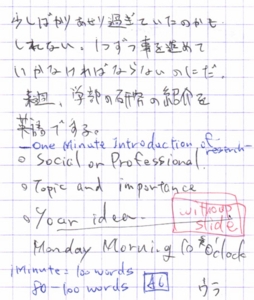 少しばかりあせり過ぎていたのかも
しれない。1つずつ事を進めて
いかなければならないのにだ。
来週、学部の研究の紹介を
英語でする。
—One Minute Introduction of research—
○ Social or Professional.
○ Topic and importance
○ Your idea.
without slide
Monday Morning 10 o'clock
1 Minute = 100 words
80-100 words
ウラ